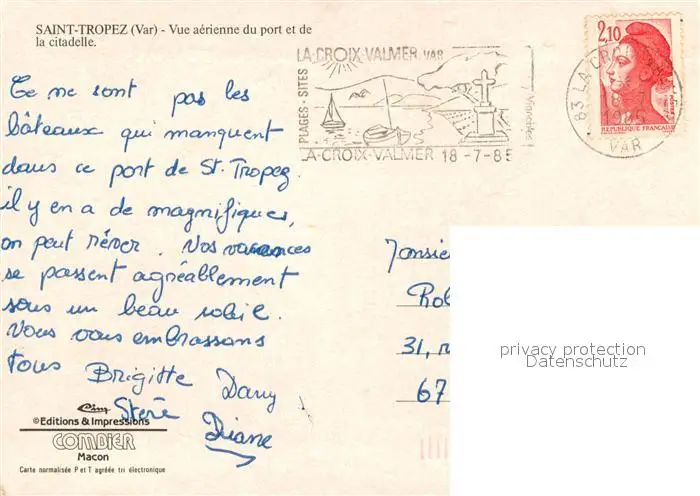 SAINT-TROPEZ (Var) - Vue aérienne du port et de
la citadelle.
LA-CROIX-VALMER VAR
PLAGES-SITES
Vignobles
LA-CROIX-VALMER 18-7-85
83 LA CROIX
18-7
1985
VAR
2,10
REPUBLIQUE FRANCAISE
Ce ne sont pas les
bâteaux qui manquent
dans ce port de St. Tropez.
il y en a de magnifiques,
on peut rêver. Vos vacances
se passent agréablement
sous un beau soleil.
Vous vous embrassons
tous Brigitte Dany
Diane
Monsieur
Rob
31, r
67
privacy protection
Datenschutz
Cim
©Editions & Impressions
COMBIER
Macon
Carte normalisée P et T agréée tri électronique